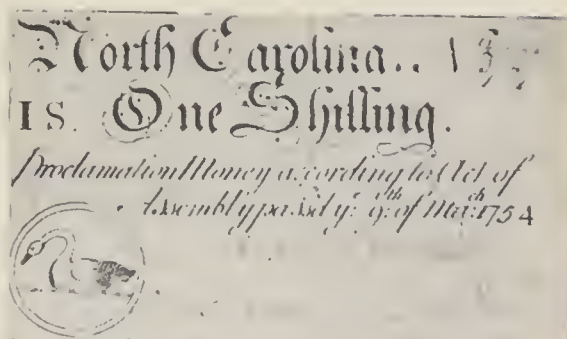 North Carolina..
1 S. One Shilling.
Proclamation Money according to Act of
Assembly pass'd yᵉ 9ᵗʰ of Mar:ᶜʰ 1754